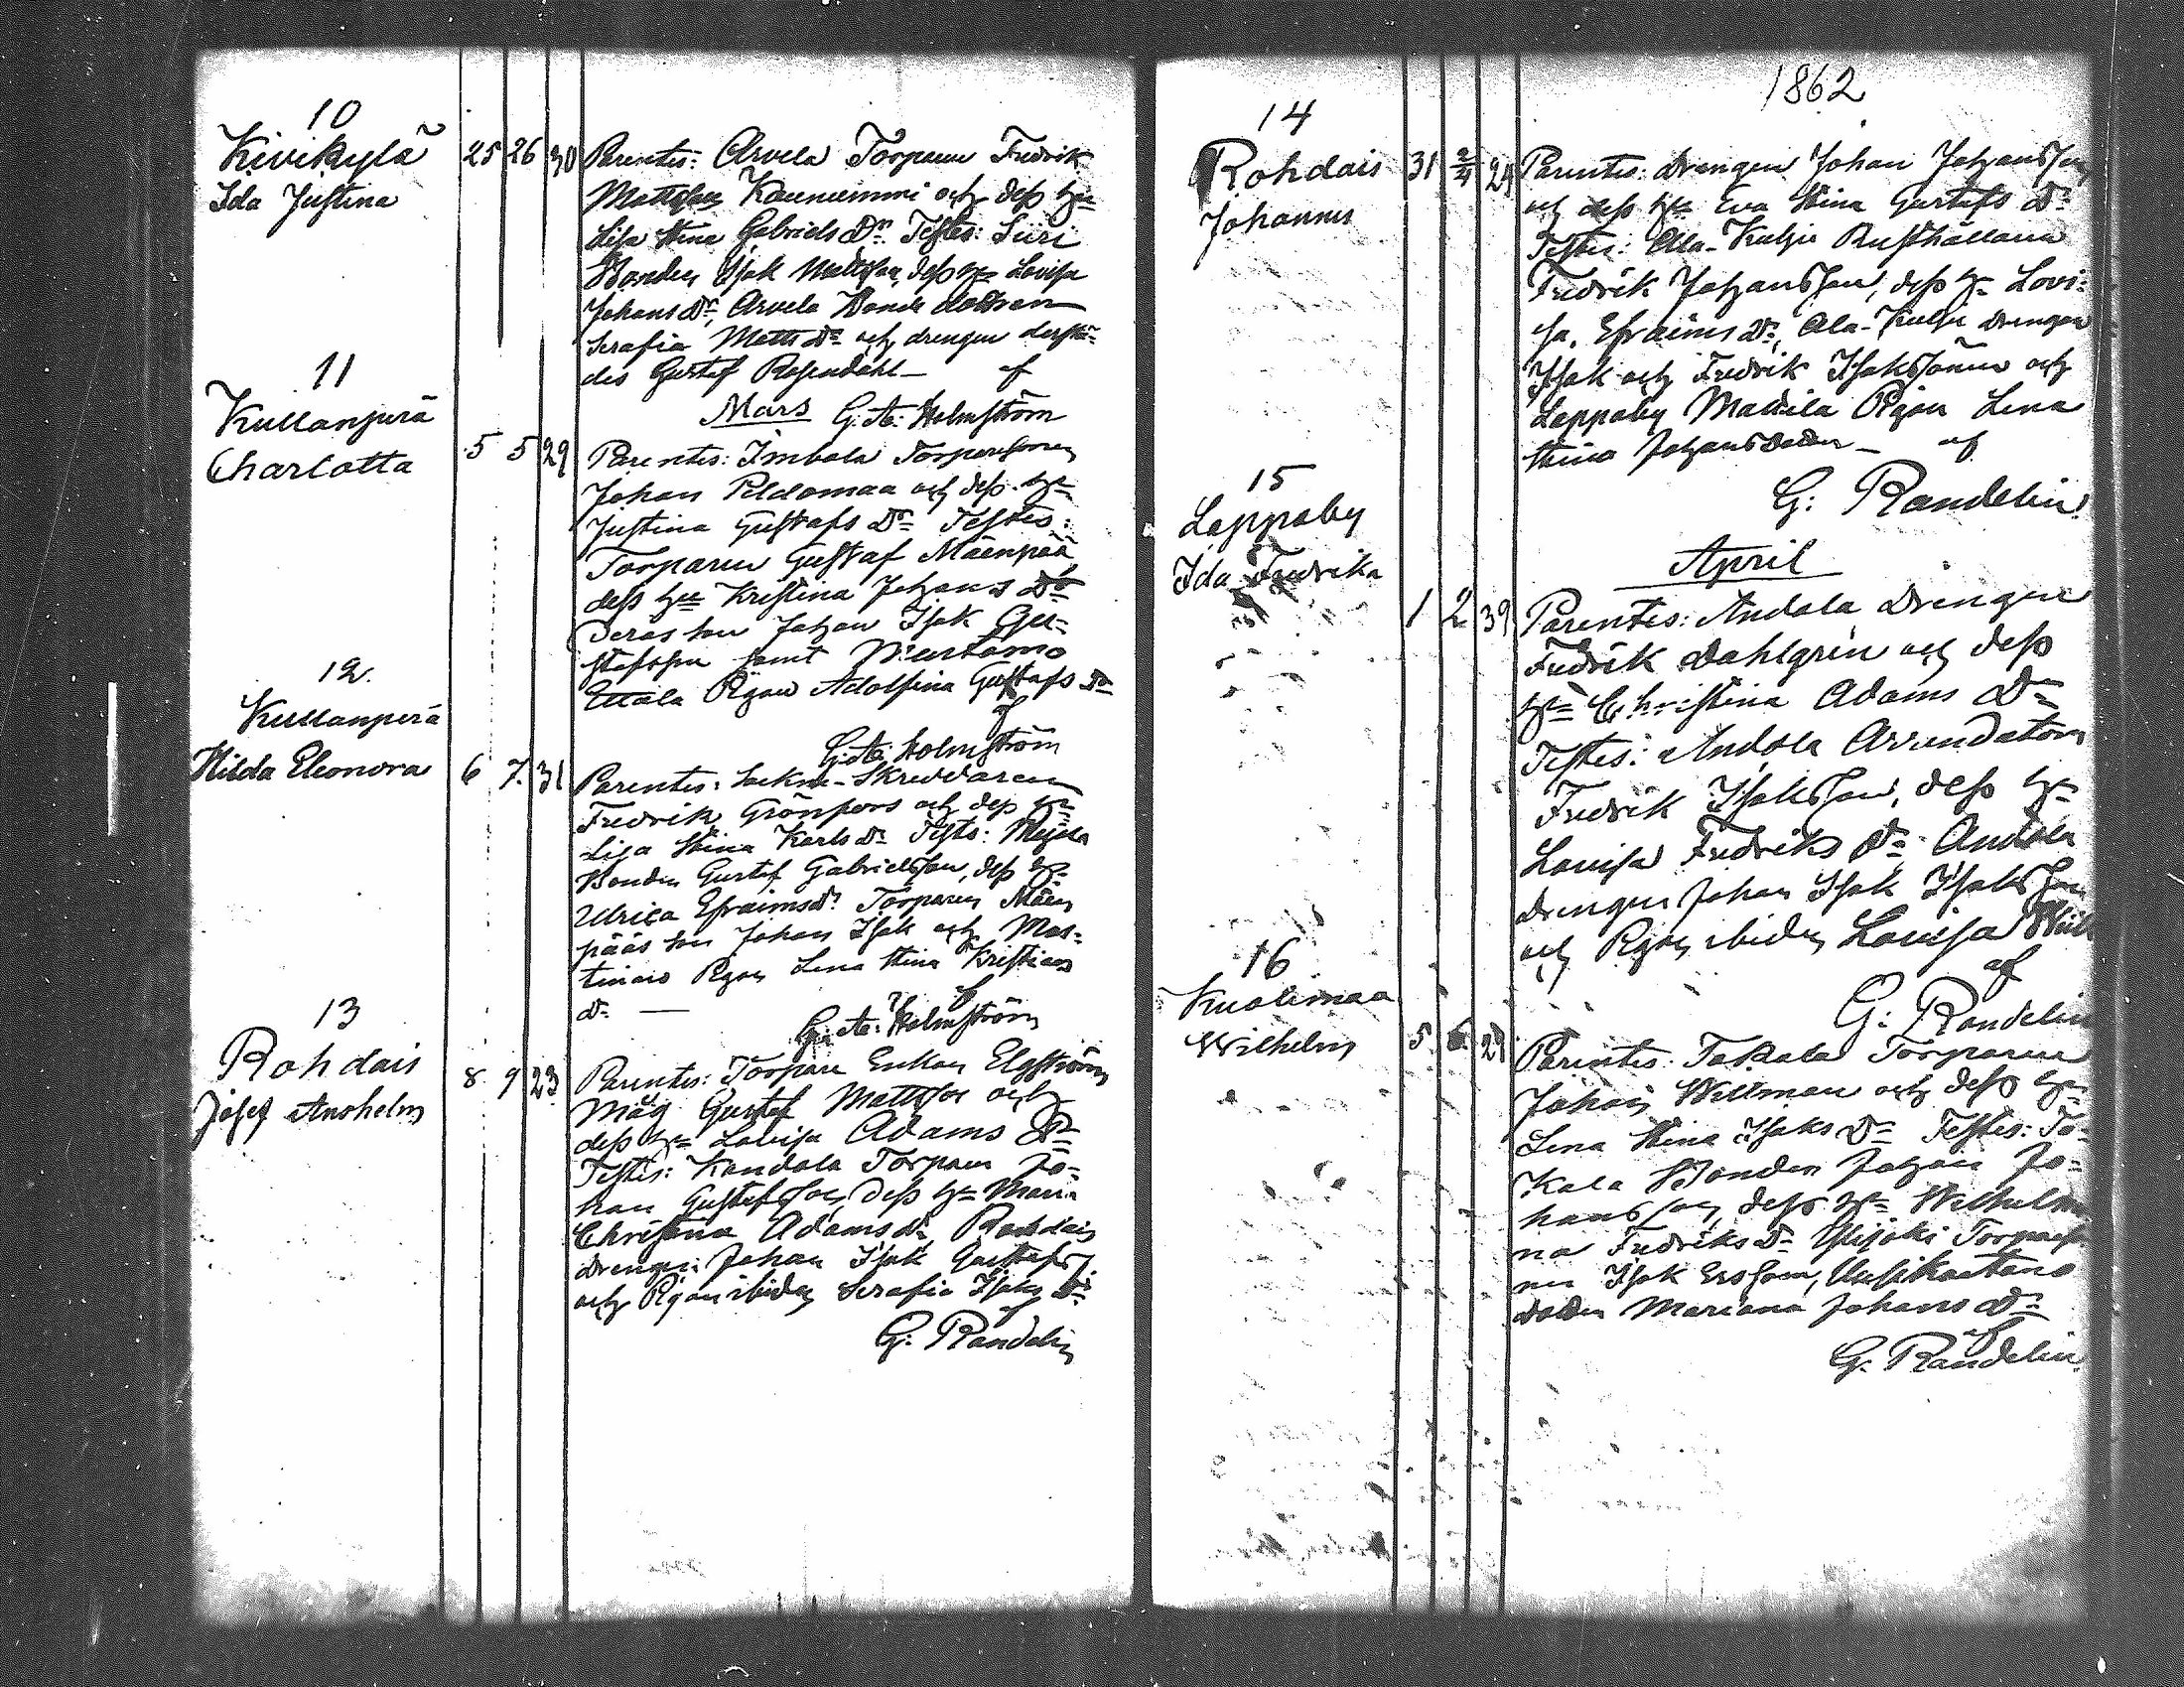 10
Kivikylä 25 26 30 Parentes: Arvela Torparen Fredrik
Ida Justina Mattsson Kauniummi och dess h:u
Lisa Stina Gabriels Dr. Testes: Suri
Bonden Isak Mattsson, dess h:u Lovisa
Johans Dr, Arvela Bonde dottren
Serafia Matts Dr och drengen derstä-
des Gustaf Rosendahl — af
Mars G. A: Holmström
11
Kullanperä
Charlotta 5 5 29 Parentes: Imbala Torparesonen
Johan Peldomaa och dess h:u
Justina Gustafs Dr Testes:
Torparen Gustaf Mäenpää
dess h:u Kristina Johans Dr
deras son Johan Isak Gu-
stafsson samt
Pigan Adolfina Gustafs Dr
af
G. A: Holmström
12.
Kullanperä
Hilda Eleonora 6 7. 31 Parentes: Sockne-Skreddaren
Fredrik Grönfors och dess h:u
Lisa Stina Karls Dr Testes:
Bonden Gustaf Gabrielsson, dess h:u
Ulrica Efraimsdr Torparen Mäen
pääs son Johan Isak och Mar-
tinais Pigan Lena Stina Kristians
dr — af
G. A: Holmström
13
Rohdais 8. 9 23 Parentes: Torpare Enkan Elgströms
Josef Anshelm Måg Gustaf Mattsson och
dess h:u Lovisa Adams Dr
Testes: Kandola Torparen Jo-
han Gustafsson, dess h:u Maria
Christina Adams dr, Rohdais
drengen Johan Isak Gustafss.
och Pigan ibidem Serafia Isaks Dr
af
G: Randelin
1862
14
Rohdais 31 2/4 24 Parentes: Drengen Johan Johansson
Johannes och dess h:u Eva Stina Gustafs Dr
Testes: Ala-Kulju Rusthållaren
Fredrik Johansson, dess h:u Lovi-
sa Efraims Dr, Ala-Kulju drengar
Isak och Fredrik Isakssöner och
Lappaby Mattila Pigan Lena
Stina Johansdotter — af
G: Randelin
April
15
Lappaby
Ida Fredrika 1 2 39 Parentes: Andala Drengen
Fredrik Dahlgrén och dess
h:u Christina Adams Dr
Testes: Andola Arrendatorn
Fredrik Isaksson, dess h:u
Lovisa Fredriks Dr Andola
drengen Johan Isak Isaksson
och Pigan ibidem Lovisa
af
G: Randelin
16
Kuolimaa
Wilhelm 5 6 29 Parentes: Takala Torparen
Johan Willman och dess h:u
Lena Stina Isaks Dr Testes: Ta-
kala Bonden Johan Jo-
hansson, dess h:u Wilhelmi
na Fredriks Dr Ylijoki Torpareso
nen Isak Ersson, Uusikartano
dotter Mariana Johans Dr
af
G. Randelin